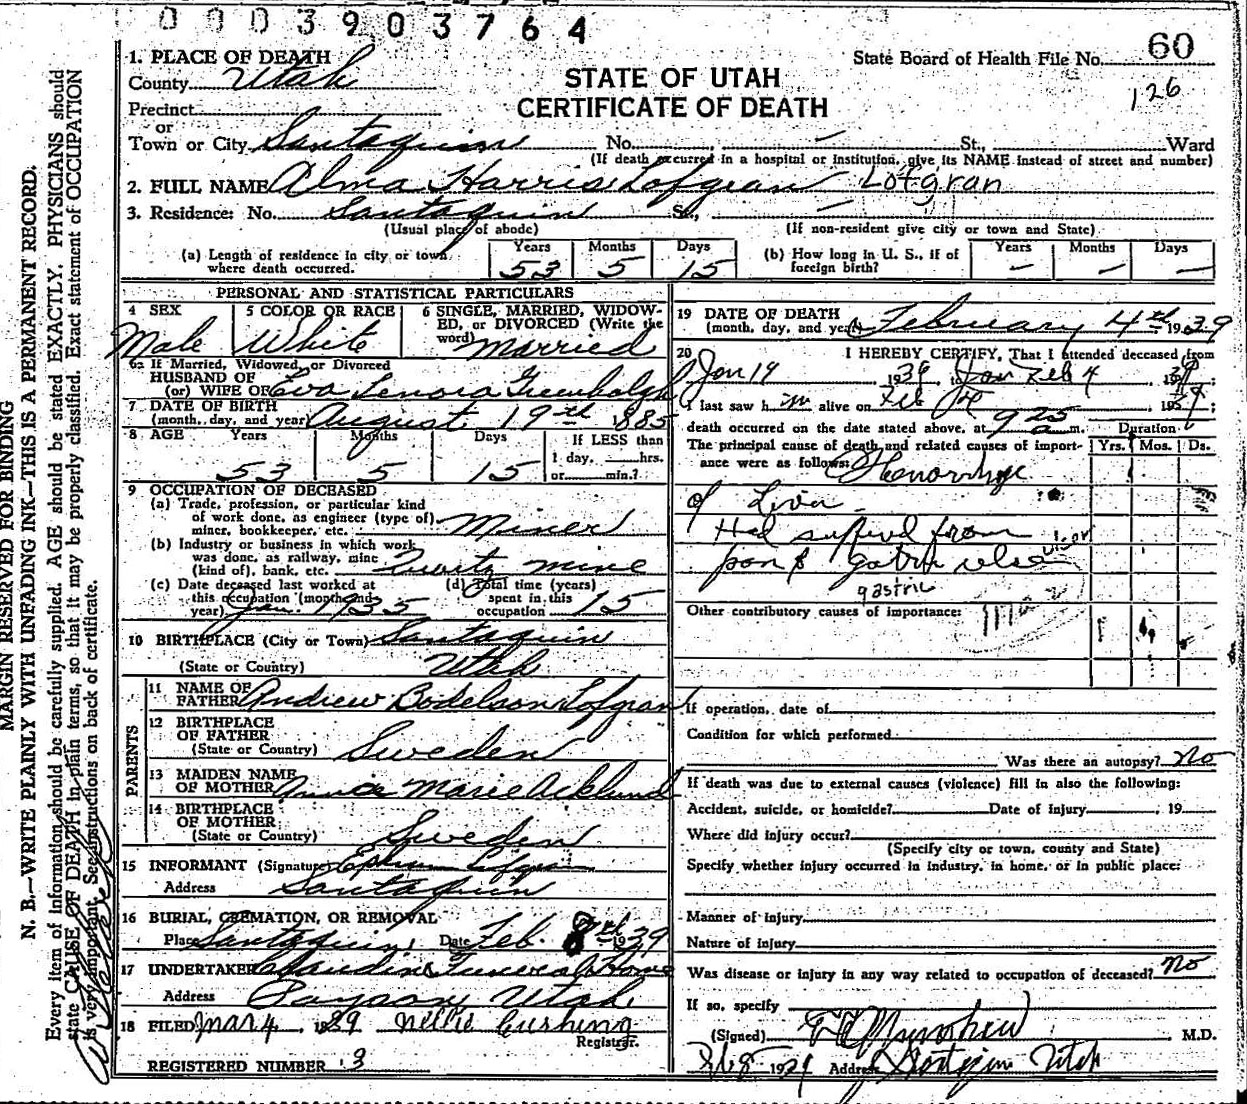 0003903764
MARGIN RESERVED FOR BINDING
N. B.—WRITE PLAINLY WITH UNFADING INK—THIS IS A PERMANENT RECORD.
Every item of information should be carefully supplied. AGE should be stated EXACTLY. PHYSICIANS should
state CAUSE OF DEATH in plain terms, so that it may be properly classified. Exact statement of OCCUPATION
is very important. See instructions on back of certificate.
State Board of Health File No. 60
126
STATE OF UTAH
CERTIFICATE OF DEATH
1. PLACE OF DEATH
County Utah
Precinct
or
Town or City Santaquin No. St., Ward
(If death occurred in a hospital or institution, give its NAME instead of street and number)
2. FULL NAME Alma Harris Lofgran Lofgran
3. Residence: No. Santaquin St.,
(Usual place of abode) (If non-resident give city or town and State)
(a) Length of residence in city or town where death occurred. Years 53 Months 5 Days 15 (b) How long in U. S., if of foreign birth? Years — Months — Days —
PERSONAL AND STATISTICAL PARTICULARS
4 SEX Male
5 COLOR OR RACE White
6 SINGLE, MARRIED, WIDOWED, or DIVORCED (Write the word) Married
6a If Married, Widowed, or Divorced
HUSBAND OF
(or) WIFE OF Eva Lenora Greenhalgh
7 DATE OF BIRTH
(month, day, and year) August 19th 1885
8 AGE Years 53 Months 5 Days 15 If LESS than
1 day, hrs.
or min.?
9 OCCUPATION OF DECEASED
(a) Trade, profession, or particular kind
of work done, as engineer (type of)
miner, bookkeeper, etc. Miner
(b) Industry or business in which work
was done, as railway, mine
(kind of), bank, etc. mine
(c) Date deceased last worked at
this occupation (month and
year) Jan. 1935
(d) Total time (years)
spent in this
occupation 15
10 BIRTHPLACE (City or Town) Santaquin
(State or Country) Utah
PARENTS
11 NAME OF
FATHER Andrew Bodelson Lofgran
12 BIRTHPLACE
OF FATHER
(State or Country) Sweden
13 MAIDEN NAME
OF MOTHER Marie Acklund
14 BIRTHPLACE
OF MOTHER
(State or Country) Sweden
15 INFORMANT (Signature)
Address Santaquin
16 BURIAL, CREMATION, OR REMOVAL
Place Santaquin, Date Feb. 8th 1939
17 UNDERTAKER Funeral Home
Address Payson Utah
18 FILED Mar 4, 1939 Nellie Cushing
Registrar.
REGISTERED NUMBER 3
19 DATE OF DEATH
(month, day, and year) February 4th 1939
20 I HEREBY CERTIFY, That I attended deceased from
Jan 19 1939 to Feb 4 1939;
I last saw him alive on Feb 1939;
death occurred on the date stated above, at 9 25 a m. Duration
The principal cause of death and related causes of importance were as follows: Yrs. Mos. Ds.
Hemorrhage
of Liver
Had suffered from
ulcer
gastric
Other contributory causes of importance:
If operation, date of
Condition for which performed
Was there an autopsy? No
If death was due to external causes (violence) fill in also the following:
Accident, suicide, or homicide? Date of injury , 19
Where did injury occur?
(Specify city or town, county and State)
Specify whether injury occurred in industry, in home, or in public place:
Manner of injury
Nature of injury
Was disease or injury in any way related to occupation of deceased? No
If so, specify
(Signed) M.D.
Feb 8 1939 Address Utah